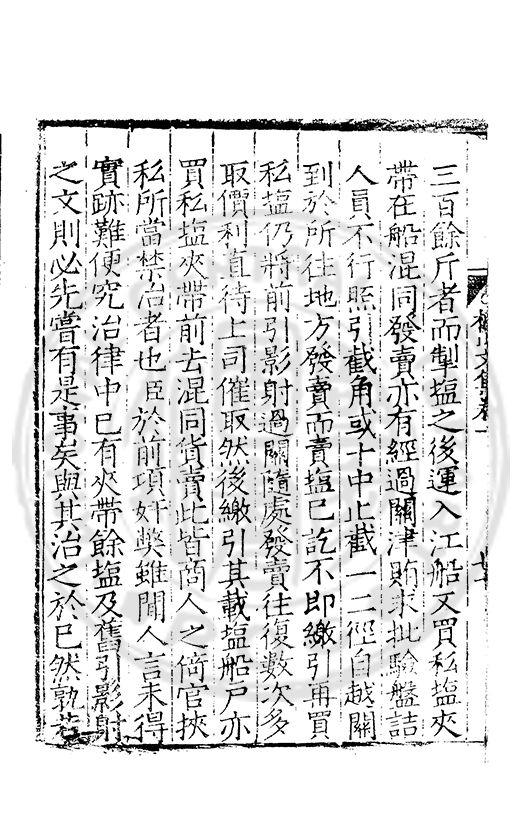 三百餘斤者而掣塩之後運入江船又買私塩夾
帶在船混同發賣亦有經過關津賄求批驗盤詰
人員不行照引截角或十中止截一二徑自越關
到於所往地方發賣而賣塩已訖不即繳引再買
私塩仍將前引影射過關隨處發賣往復數次多
取價利直待上司催取然後繳引其載塩船戶亦
買私塩夾帶前去混同貨賣此皆商人之倚官挾
私所當禁治者也臣於前項奸獘雖聞人言未得
實跡難便究治律中已有夾帶餘塩及舊引影射
之文則必先嘗有是事矣與其治之於已然孰若
文集卷一